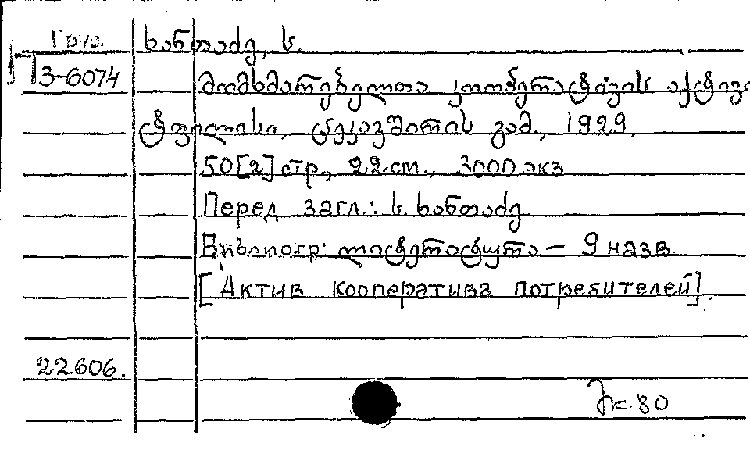 Груз. ხანთაძე, ს.
3-6074 მომხმარებელთა კოოპერატივის აქტივი
ტფილისი, ცეკავშირის გამ., 1929.
50[2] стр., 22 см., 3000 экз
Перед загл.: ს. ხანთაძე
Библиогр: ლიტერატურა – 9 назв
[Актив кооператива потребителей].
22606.
80